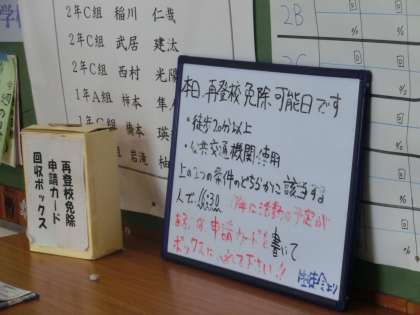 2年C組 稲川 仁哉
2年C組 武居 建汰
2年C組 西村 光陽
1年A組 柿本 隼
1年 橋本 瑛
岩滝
2B
2C
再登校免除
申請カード
回収ボックス
本日、再登校免除可能日です
・徒歩20分以上
・公共交通機関使用
上の2つの条件のどちらかに該当する
人で、
活動の予定が
ある方は申請カードを書いて
ボックスに入れて下さい!!
生徒会より